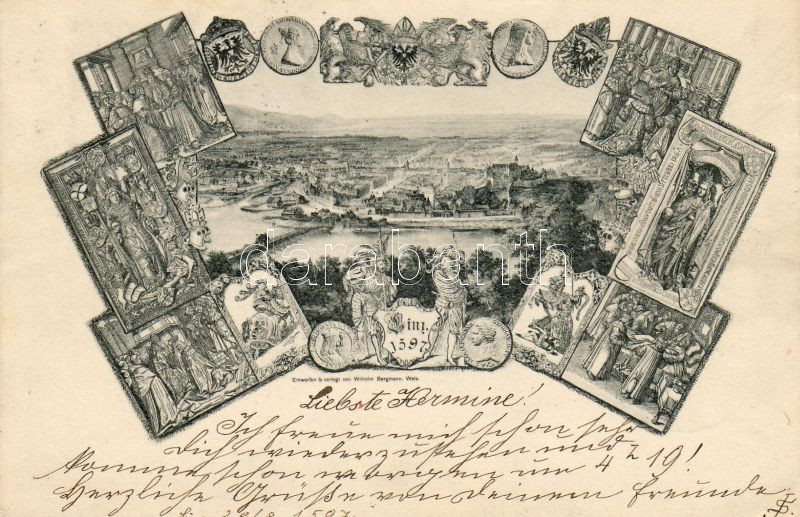 Linz.
1597
Entworfen & verlegt von Wilhelm Bergmann, Wels.
darabanth
Liebste Hermine!
Ich freue mich schon sehr
Dich wiederzusehen und
komme schon morgen um 4 19!
Herzliche Grüße von Deinem Freunde